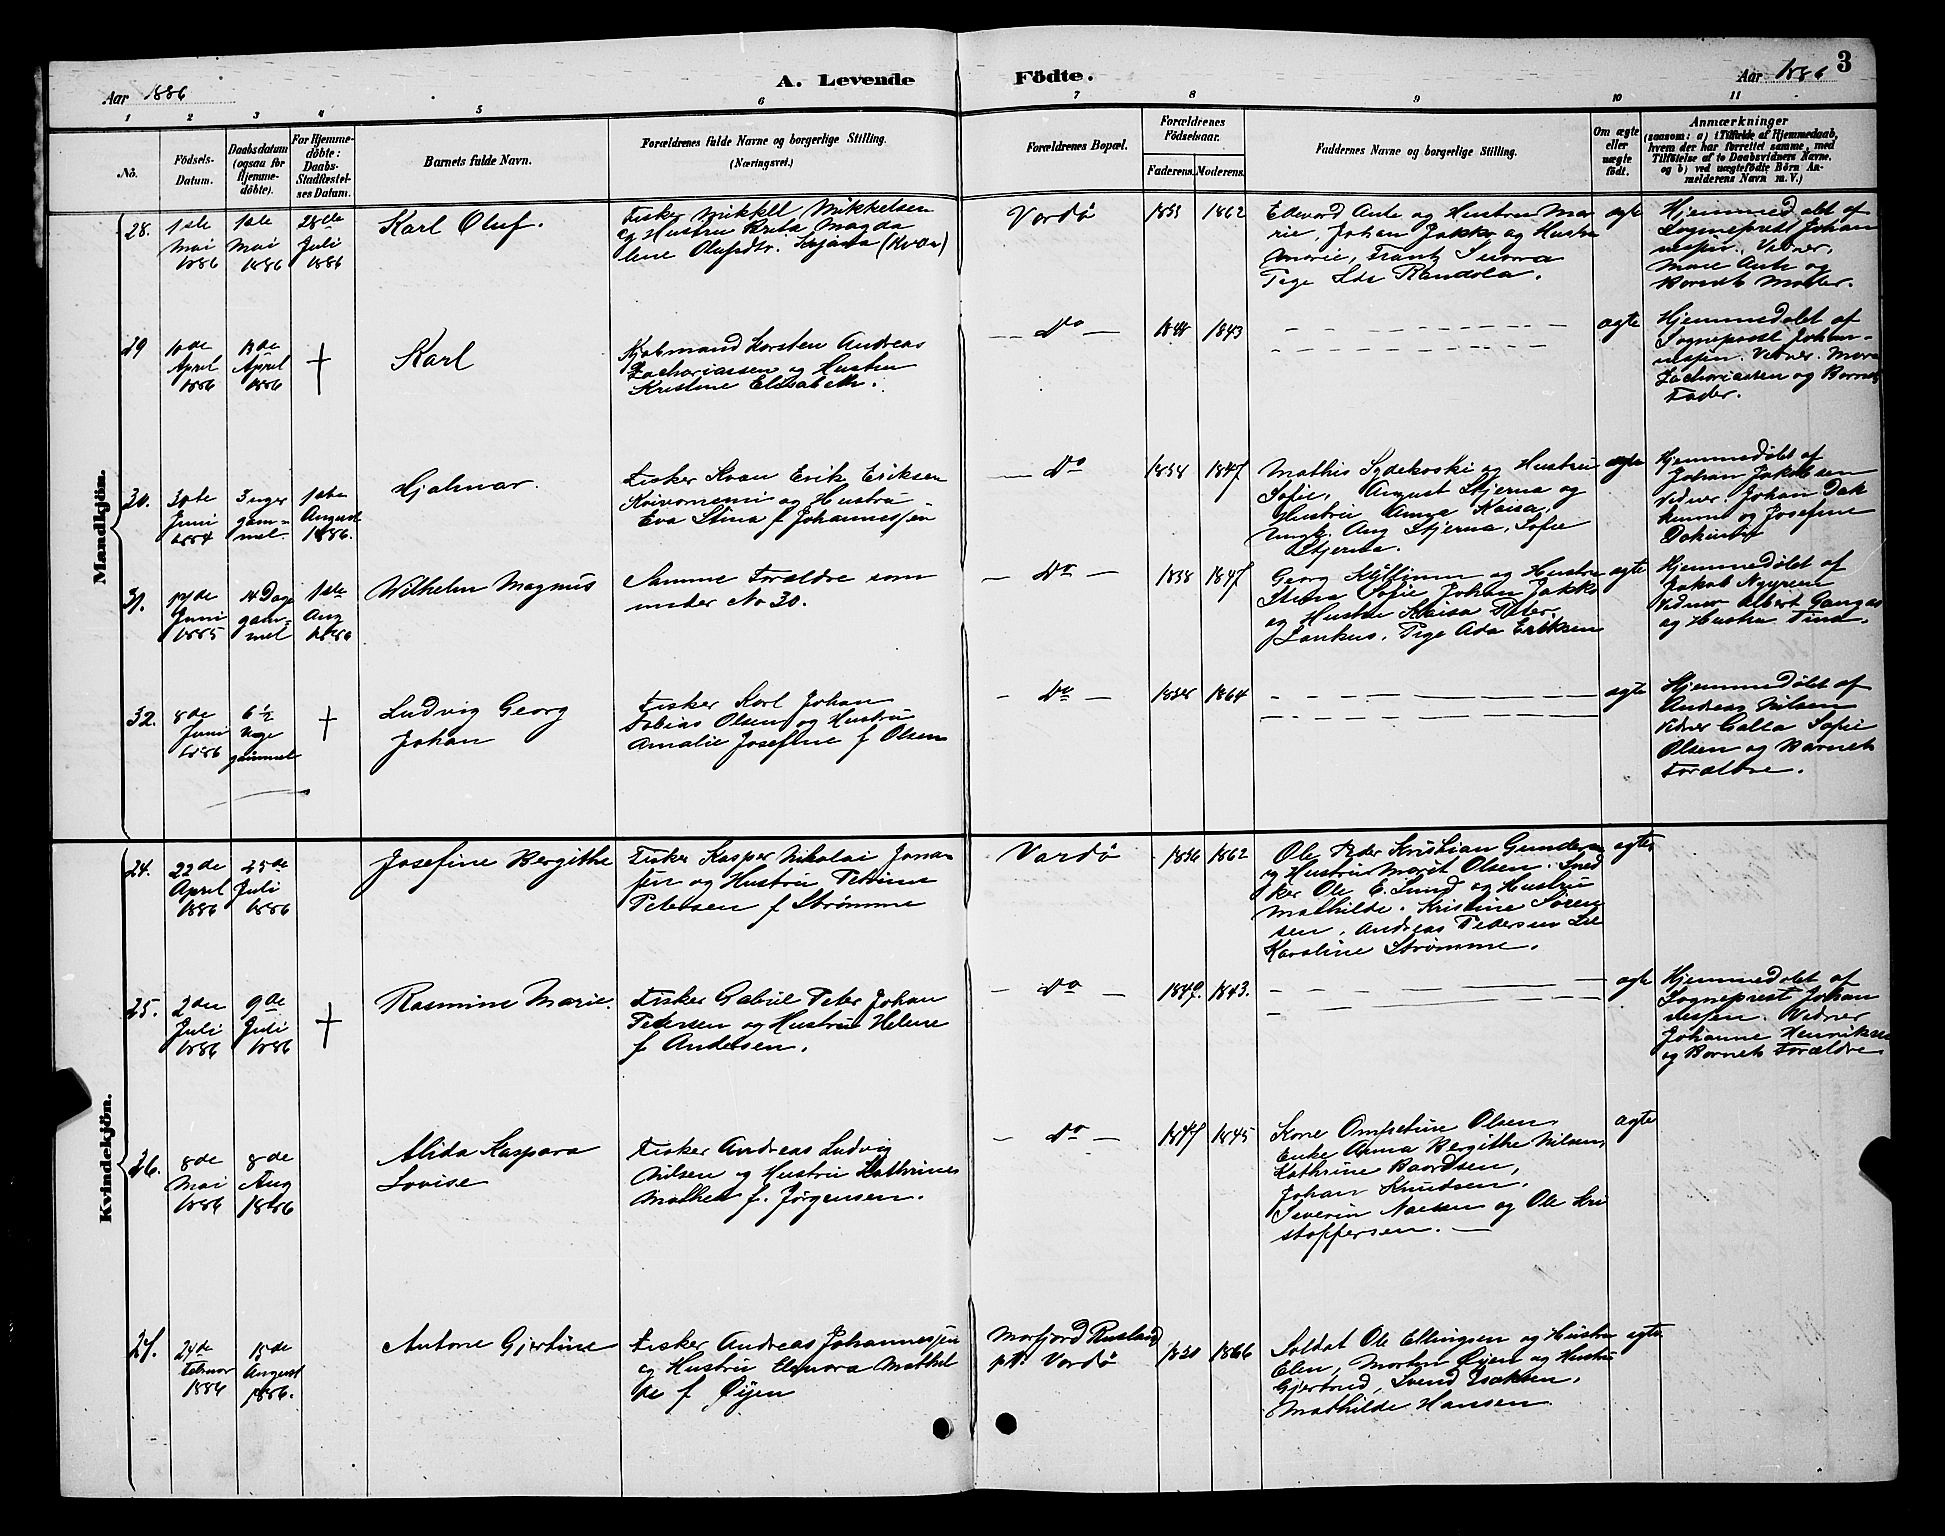 Aar 1886
A. Levende
Födte.
Aar 1886
3
1 2 3 4 5 6 7 8 9 10 11
No.
Födsels-
Datum.
Daabsdatum
(ogsaa for
Hjemme-
döbte).
For Hjemme-
döbte:
Daabs-
Stadfæstel-
ses Datum.
Barnets fulde Navn.
Forældrenes fulde Navne og borgerlige Stilling.
(Næringsvei.)
Forældrenes Bopæl.
Forældrenes
Födselsaar.
Faderens. Moderens.
Faddernes Navne og borgerlige Stilling.
Om ægte
eller
uægte
födt.
Anmærkninger
(saasom: a) i Tilfælde af Hjemmedaab,
hvem der har forrettet samme, med
Tilföielse af to Daabsvidners Navne,
og b) ved uægtefödte Börn An-
melderens Navn m. V.)
Mandkjön.
28.
1ste
Mai
1886
1ste
Mai
1886
28de
Juli
1886
Karl Oluf.
Fisker Mikkel Mikkelsen
og Hustru Brita Magda
lene Olufsdtr.
Vardö
1862
Edevard Ante og Hustru Ma
rie, Johan Jakko og Hustru
Marie, Frants
Pige Ida
ægte
Hjemmedöbt af
Sogneprest Johan
nesen. Vidner,
Ante og
Barnets Moder.
29
April
1886
April
1886
+
Karl
Kjöbmand Andreas
Zachariassen og Hustru
Kristine Elisabeth.
— Do —
1843
ægte
Hjemmedöbt af
Sogneprest Johan-
nesen. Vidner.
Zachariassen og Barnets
Fader.
30.
Juni
1884
3 uger
gam-
mel.
1ste
August
1886.
Hjalmar.
Fisker Kvæn Erik Eriksen
Koivoniemi og Hustru
Eva Stina f. Johannessen
— Do
1838 1847
Mathis og Hustru
Sofie, August Stjerna og
Hustru Anna Kaisa,
Ungk. Aug Stjerna, Sofie
Stjerna.
ægte
Hjemmedöbt af
Johan Jakobsen
Vidner. Johan
og Josefine
31.
Juni
1885
14 Dage
gam-
mel
1ste
Aug
1886
Wilhelm Magnus
Samme Forældre som
under No 30.
— Do —
1838 1847
Georg og Hustru
Stina Sofie Johan Jakko
og Hustru Kaisa Peter
Pige Ada Eriksen
ægte
Hjemmedöbt af
Jakob
Vidner Albert Gangas
og Hustru
32.
8de
Juni
1886
6 1/2
Uge
gammel
+
Ludvig Georg
Johan
Fisker Karl Johan
Tobias Olsen og Hustru
Amalie Josefine f. Olsen
— Do —
1864
ægte
Hjemmedöbt af
Andreas Nilsen
Vidner Sofie
Olsen og Barnets
Forældre.
Kvindekjön.
24.
22de
April
1886
25de
Juli
1886
Josefine Bergithe
Fisker Kasper Nikolai Jona-
sen og Hustru Petrine
Petersen f. Strömme
Vardö
1856 1862
Ole Peder Kristian Gunders
og Hustru Marit Olsen. Sned
ker Ole E. Lund og Hustru
Mathilde. Kristine Soren
sen, Andreas Pedersen
Karoline Strömme.
ægte
25.
2den
Juli
1886
9de
Juli
1886
+
Rasmine Marie.
Fisker Gabriel Peter Johan
Pedersen og Hustru Helene
f. Andersen.
— Do —
1843.
ægte
Hjemmedöbt af
Sogneprest Johan
nessen. Vidner
Johanne Henriksen
og Barnets Forældre
26.
8de
Mai
1886
8de
Aug
1886
Alida Kaspara
Lovise
Fisker Andreas Ludvig
Nilsen og Hustru Kathrines
Mathea f. Jörgensen.
— Do —
1847 1845
Kone Olsen
Enke Anna Bergithe Nilsen,
Kathrine Baardsen,
Johan Knudsen,
Severin og Ole Kri
stoffersen. —
ægte
27.
24de
Februar
1886
15de
August
1886.
Antone Gjertine
Fisker Andreas Johannessen
og Hustru Elenora Mathil
de f. Öijen
Rusland
pt. Vardö
1866
Soldat Ole Ellingsen og Hustru
Elen, Morten Öijen og Hustru
Gjertrud, Svend Isaksen,
Mathilde Hansen.
ægte